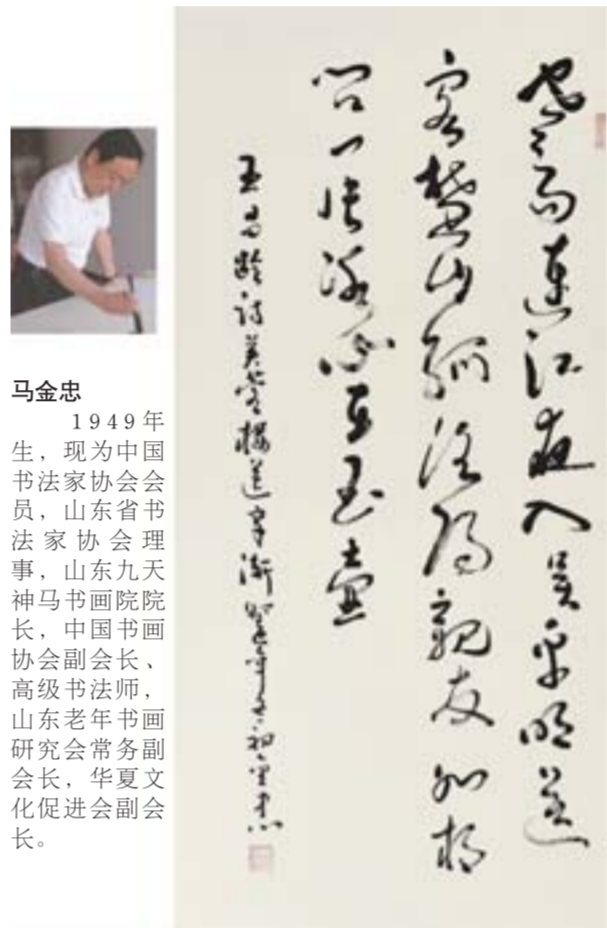 马金忠
1949年
生，现为中国
书法家协会会
员，山东省书
法家协会理
事，山东九天
神马书画院院
长，中国书画
协会副会长、
高级书法师，
山东老年书画
研究会常务副
会长，华夏文
化促进会副会
长。
寒雨連江夜入吴平明送
客楚山孤洛陽親友如相
问一片冰心在玉壶
王昌龄诗芙蓉楼送辛渐 年 初金忠